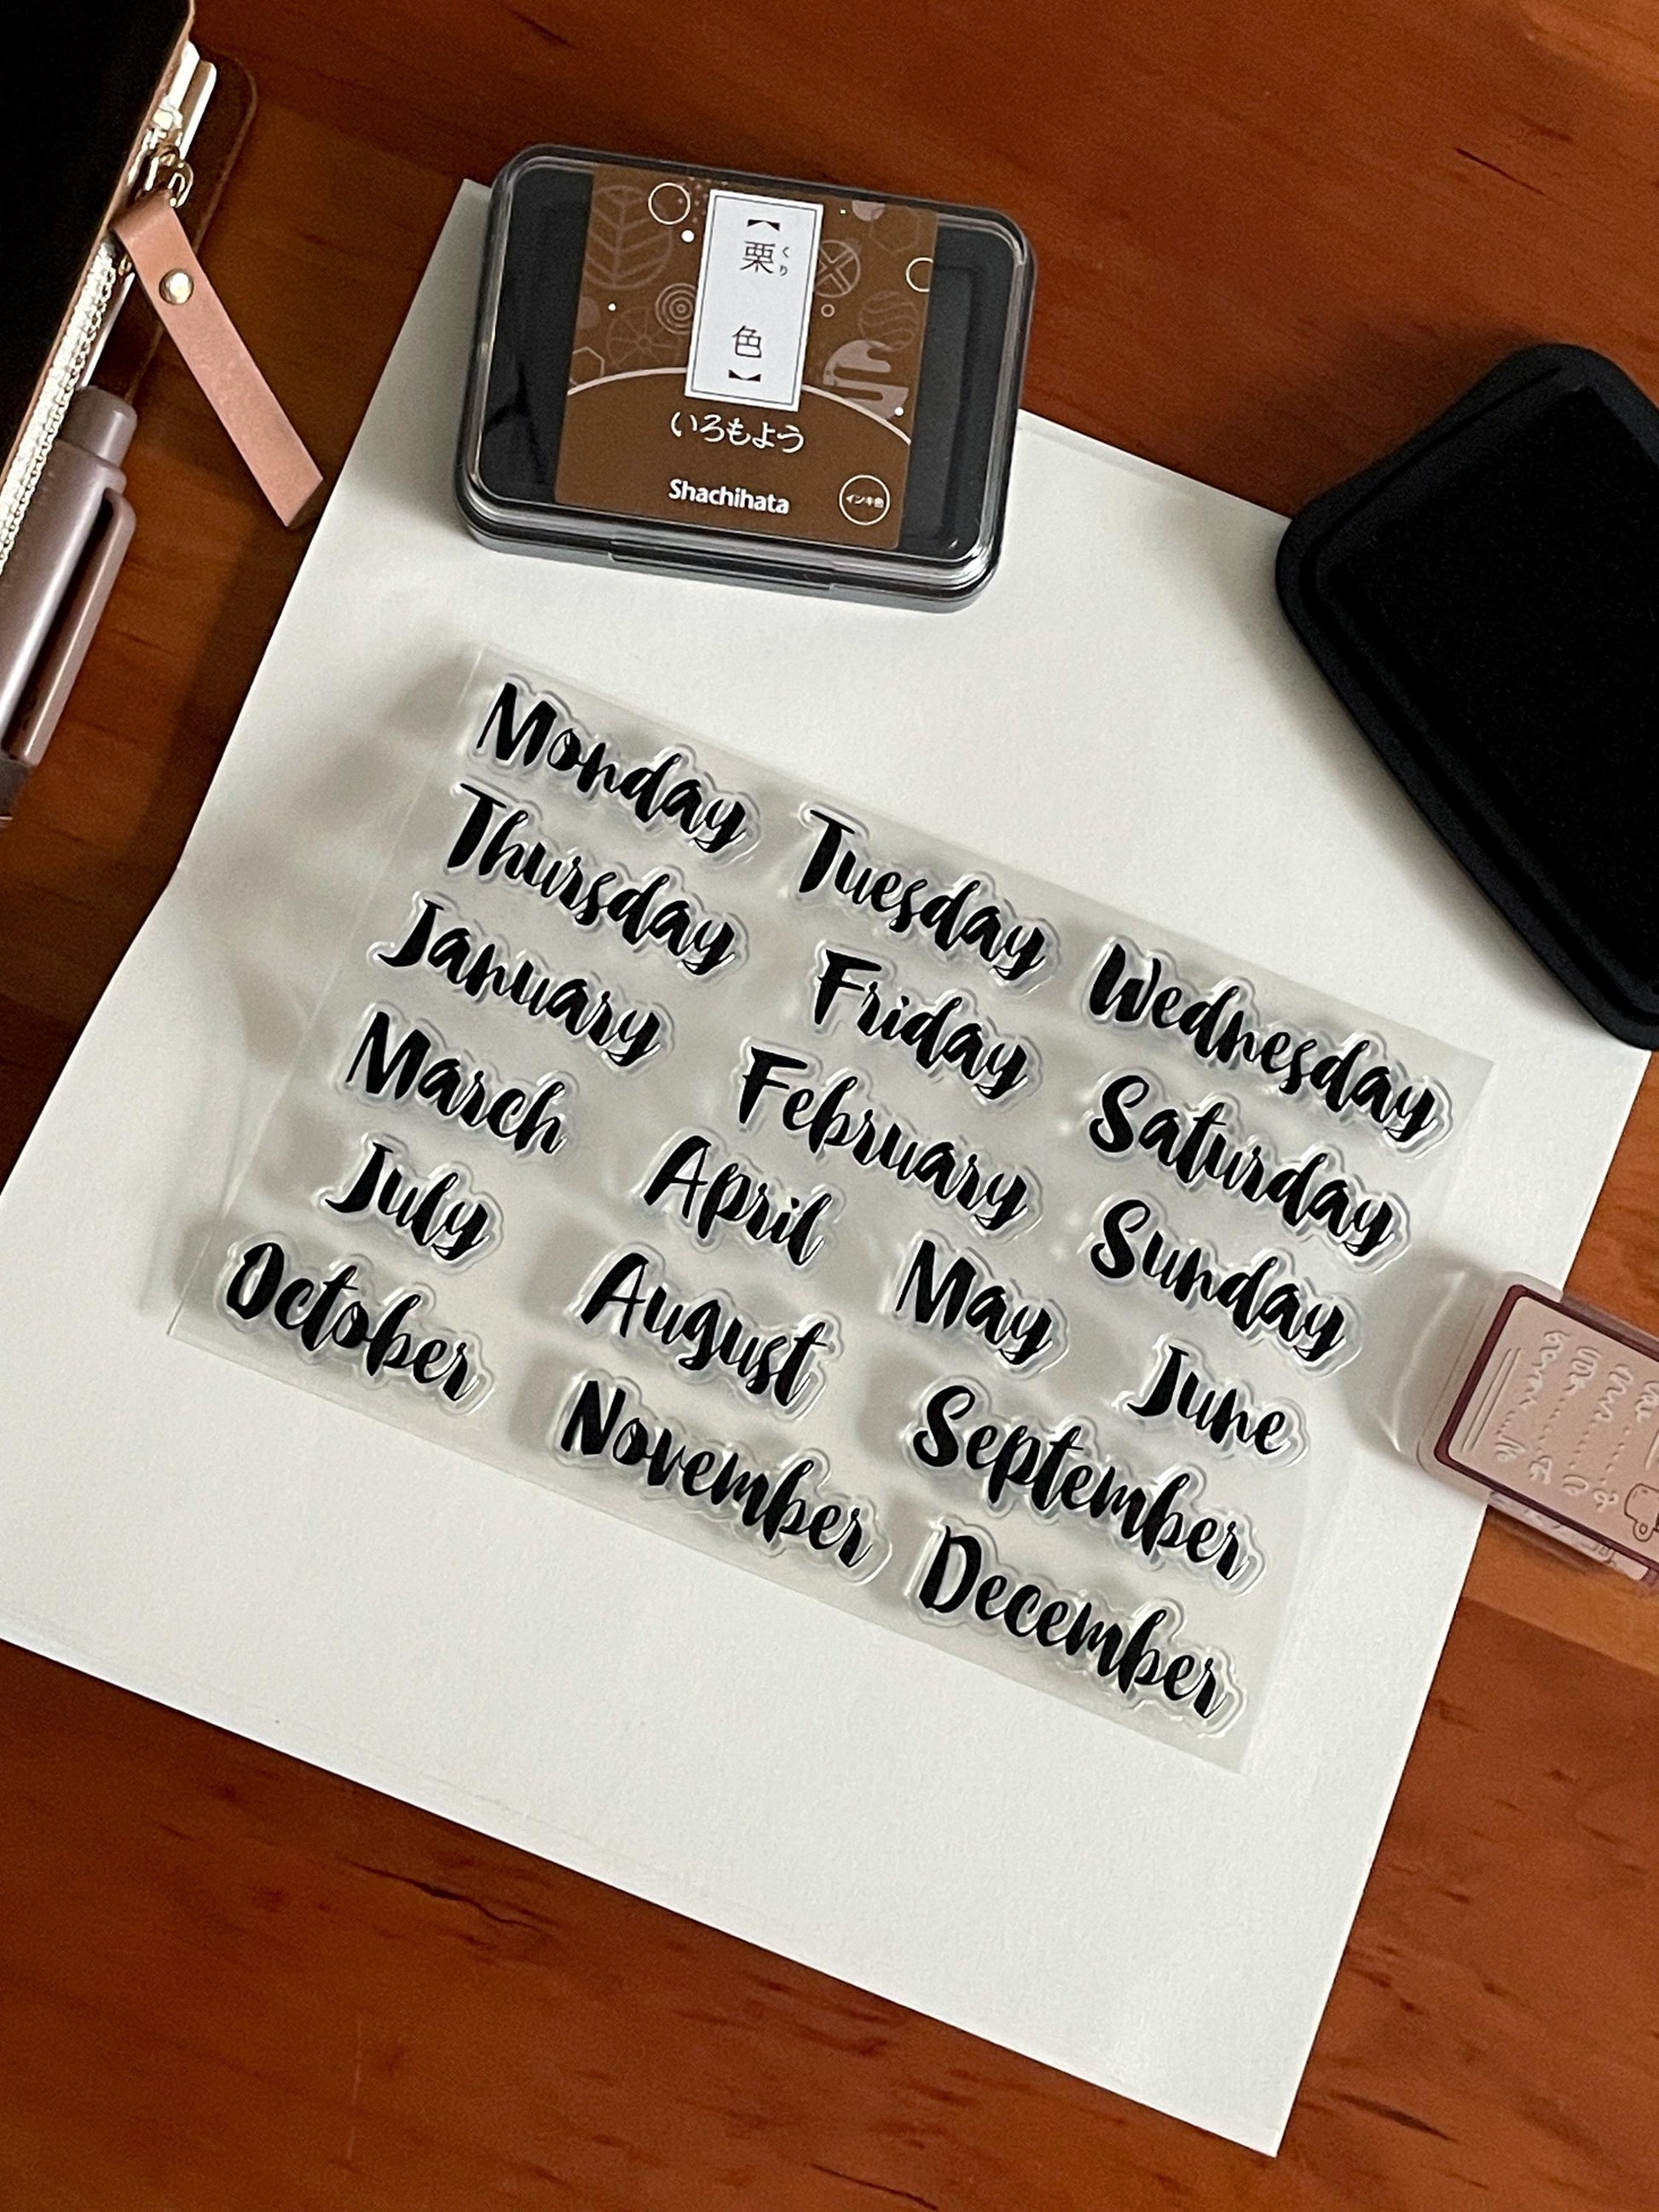 【栗色】
くり
いろもよう
Shachihata
インキ色
Monday Tuesday Wednesday
Thursday Friday Saturday
January February Sunday
March April May June
July August September
October November December